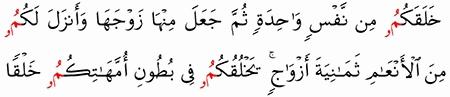 خَلَقَكُمُۥ مِن نَّفْسٍ وَٰحِدَةٍ ثُمَّ جَعَلَ مِنْهَا زَوْجَهَا وَأَنزَلَ لَكُمُۥ
مِنَ ٱلْأَنْعَٰمِ ثَمَٰنِيَةَ أَزْوَٰجٍ ۚ يَخْلُقُكُمُۥ فِى بُطُونِ أُمَّهَٰتِكُمُۥ خَلْقًا